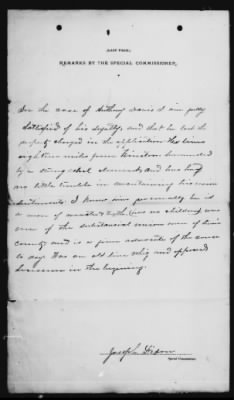 (LAST PAGE.)
REMARKS BY THE SPECIAL COMMISSIONER.
In the case of Anthony Davis I am fully
satisfied of his loyalty, and that he lost the
property charged in the application He lives
eighteen miles from Kinston surrounded
by a strong rebel element and has had
no little trouble in maintaining his union
sentiments. I know him personally he is
a man of
one of the substantial union men of Lenoir
county and is a firm advocate of the cause
to day. Was an old line whig and opposed
secession in the beginning.
Joseph Dixon
Special Commissioner.